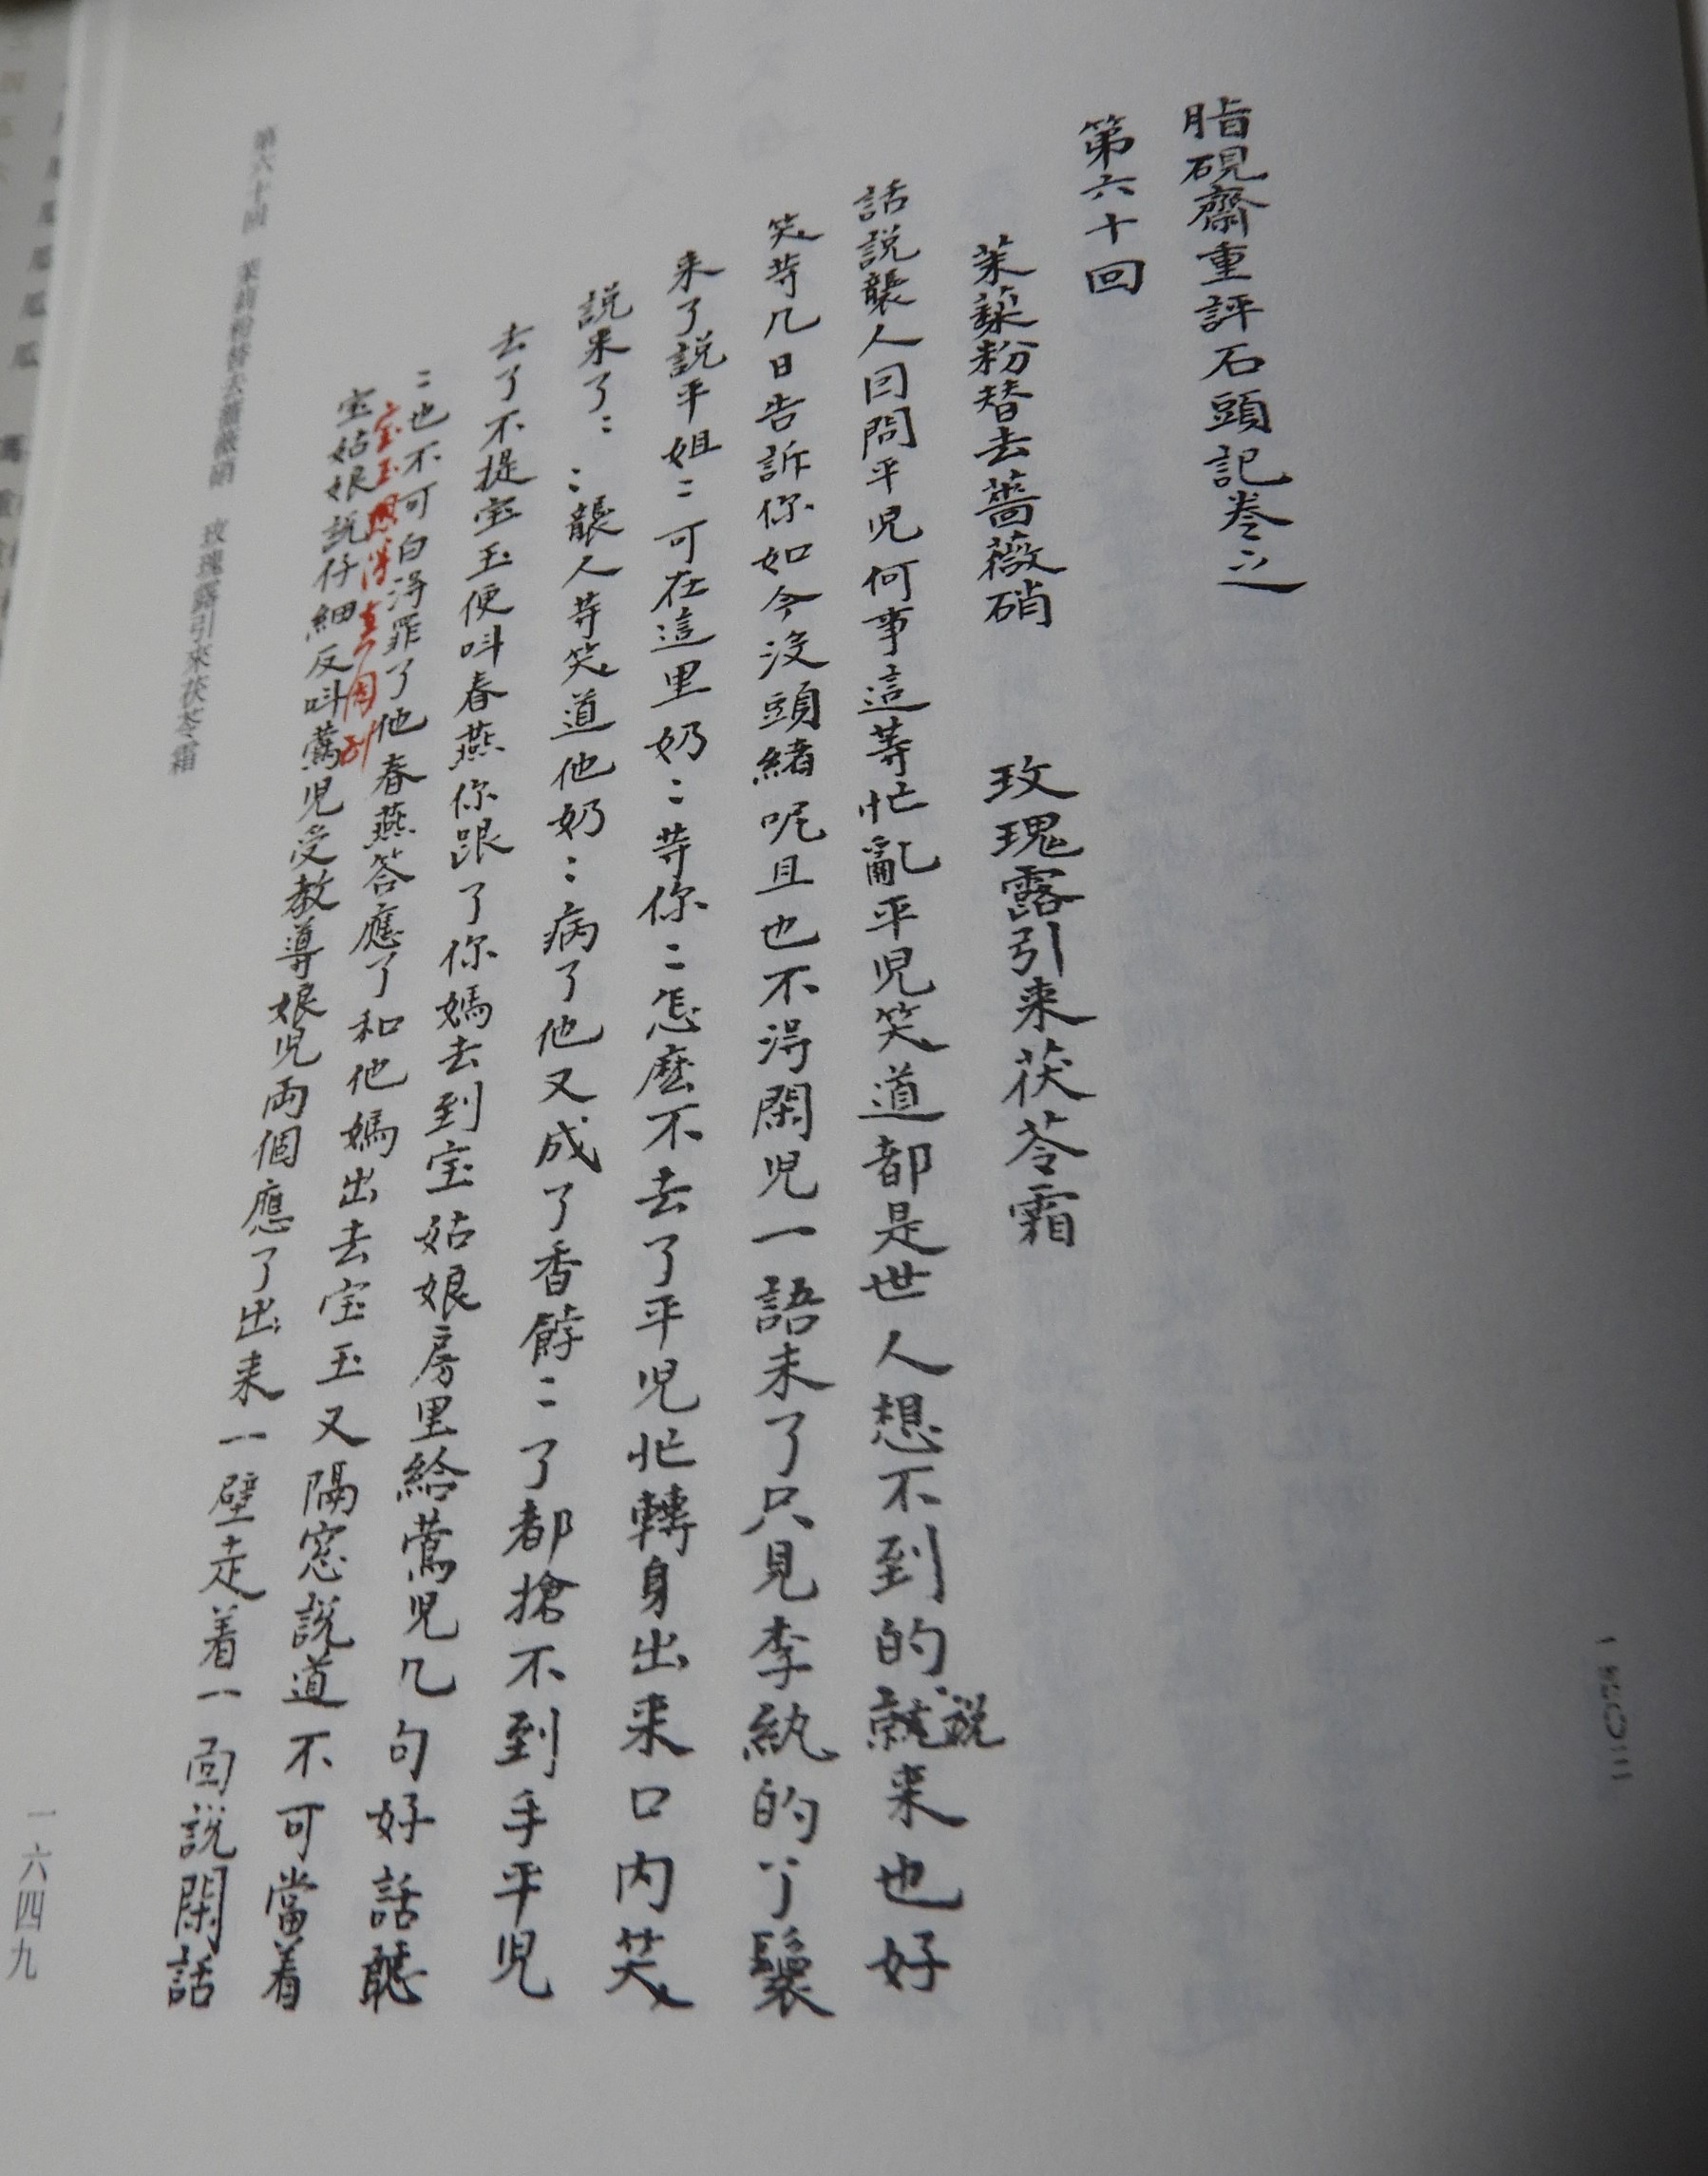 脂硯齋重評石頭記卷之
第六十回
茉莉粉替去薔薇硝 玫瑰露引来茯苓霜
話説襲人因問平児何事這等忙亂平児笑道都是世人想不到的就説来也好
笑等几日告訴你如今没頭緒呢且也不淂閑児一語未了只見李紈的丫鬟
来了説平姐〻可在這里奶〻等你〻怎麽不去了平児忙轉身出来口内笑
説来了〻〻襲人等笑道他奶〻病了他又成了香餑〻了都搶不到手平児
去了不提宝玉便呌春燕你跟了你媽去到宝姑娘房里給鶯児几句好話聽
〻也不可白淂罪了他春燕答應了和他媽出去宝玉又隔窓説道不可當着
宝姑娘説仔細反呌鶯児受教導娘児両個應了出来一壁走着一面説閑話
第六十回 茉莉粉替去薔薇硝 玫瑰露引來茯苓霜
一六四九